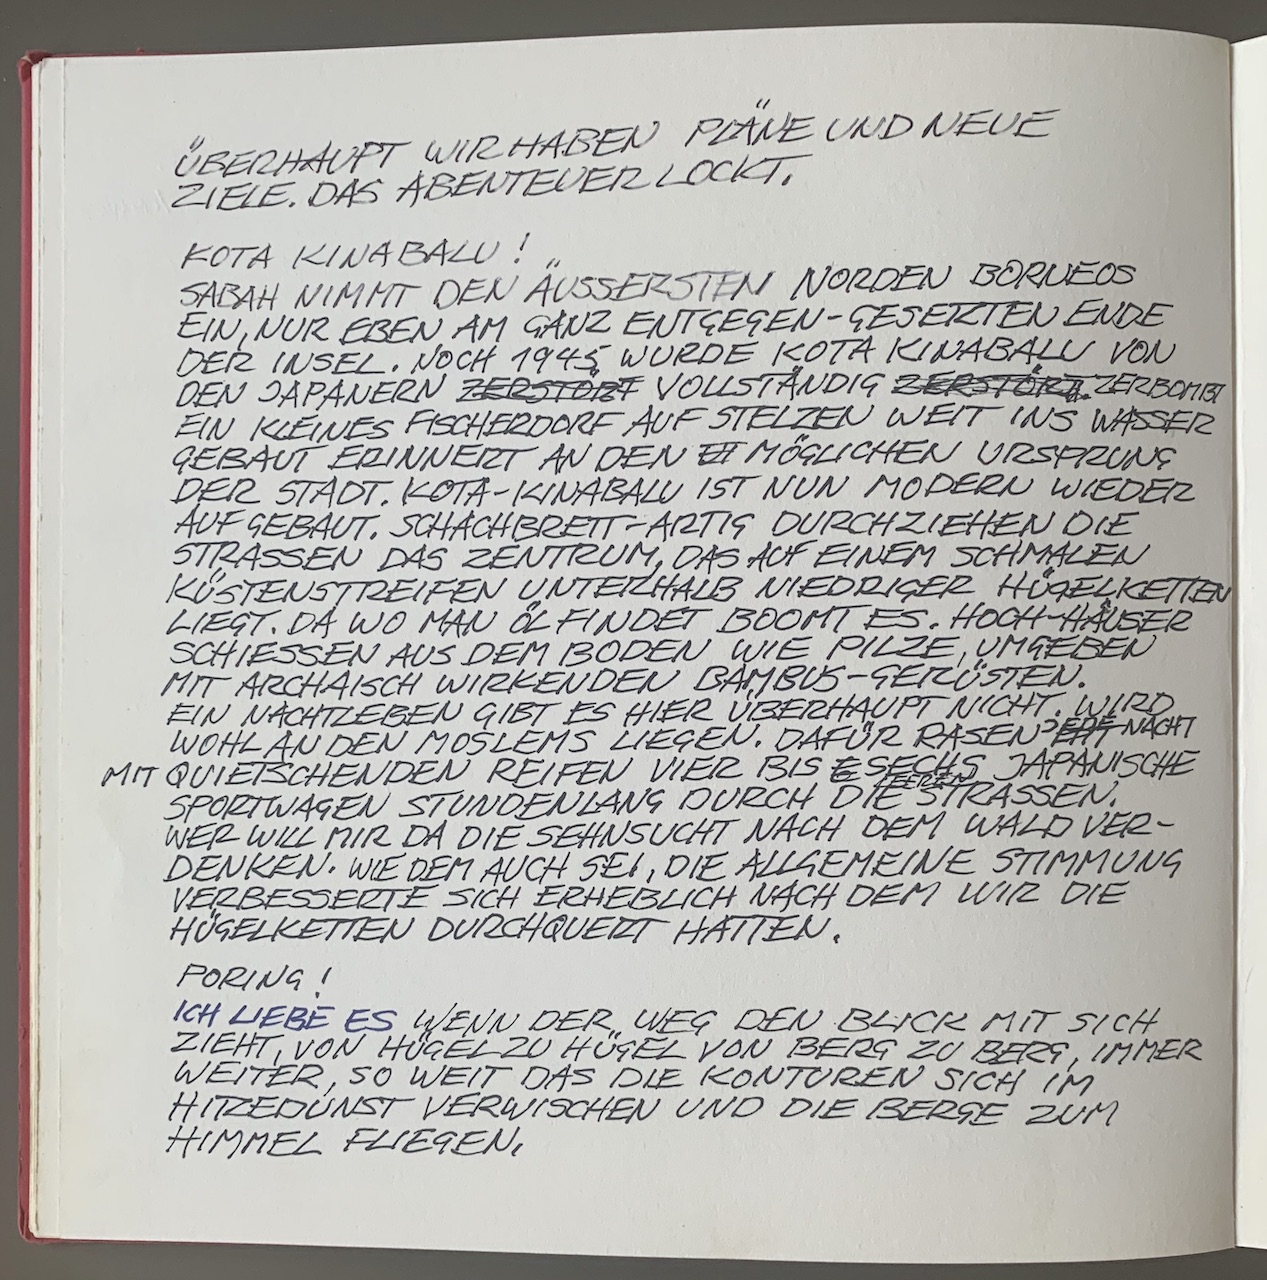 ÜBERHAUPT WIR HABEN PLÄNE UND NEUE
ZIELE. DAS ABENTEUER LOCKT.
KOTA KINABALU!
SABAH NIMMT DEN ÄUSSERSTEN NORDEN BORNEOS
EIN, NUR EBEN AM GANZ ENTGEGEN-GESETZTEN ENDE
DER INSEL. NOCH 1945 WURDE KOTA KINABALU VON
DEN JAPANERN ZERSTÖRT VOLLSTÄNDIG ZERSTÖRT. ZERBOMBT
EIN KLEINES FISCHERDORF AUF STELZEN WEIT INS WASSER
GEBAUT ERINNERT AN DEN MÖGLICHEN URSPRUNG
DER STADT. KOTA-KINABALU IST NUN MODERN WIEDER
AUFGEBAUT. SCHACHBRETT-ARTIG DURCHZIEHEN DIE
STRASSEN DAS ZENTRUM, DAS AUF EINEM SCHMALEN
KÜSTENSTREIFEN UNTERHALB NIEDRIGER HÜGELKETTEN
LIEGT. DA WO MAN ÖL FINDET BOOMT ES. HOCH-HÄUSER
SCHIESSEN AUS DEM BODEN WIE PILZE, UMGEBEN
MIT ARCHAISCH WIRKENDEN BAMBUS-GERÜSTEN.
EIN NACHTLEBEN GIBT ES HIER ÜBERHAUPT NICHT. WIRD
WOHL AN DEN MOSLEMS LIEGEN. DAFÜR RASEN JEDE NACHT
MIT QUIETSCHENDEN REIFEN VIER BIS SECHS JAPANISCHE
SPORTWAGEN STUNDENLANG DURCH DIE LEEREN STRASSEN.
WER WILL MIR DA DIE SEHNSUCHT NACH DEM WALD VER-
DENKEN. WIE DEM AUCH SEI, DIE ALLGEMEINE STIMMUNG
VERBESSERTE SICH ERHEBLICH NACH DEM WIR DIE
HÜGELKETTEN DURCHQUERT HATTEN.
PORING!
ICH LIEBE ES WENN DER WEG DEN BLICK MIT SICH
ZIEHT, VON HÜGEL ZU HÜGEL VON BERG ZU BERG, IMMER
WEITER, SO WEIT DAS DIE KONTUREN SICH IM
HITZEDUNST VERWISCHEN UND DIE BERGE ZUM
HIMMEL FLIEGEN.